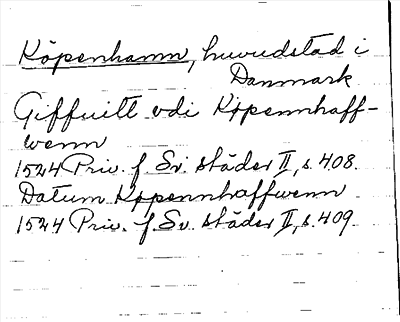 Köpenhamn, huvudstad i
Danmark
Giffuitt vdi Køpennhaff-
wenn
1524 Priv. f. Sv. städer II, s. 408.
Datum Køpennhaffwenn
1524 Priv. f. Sv. städer II, s. 409.